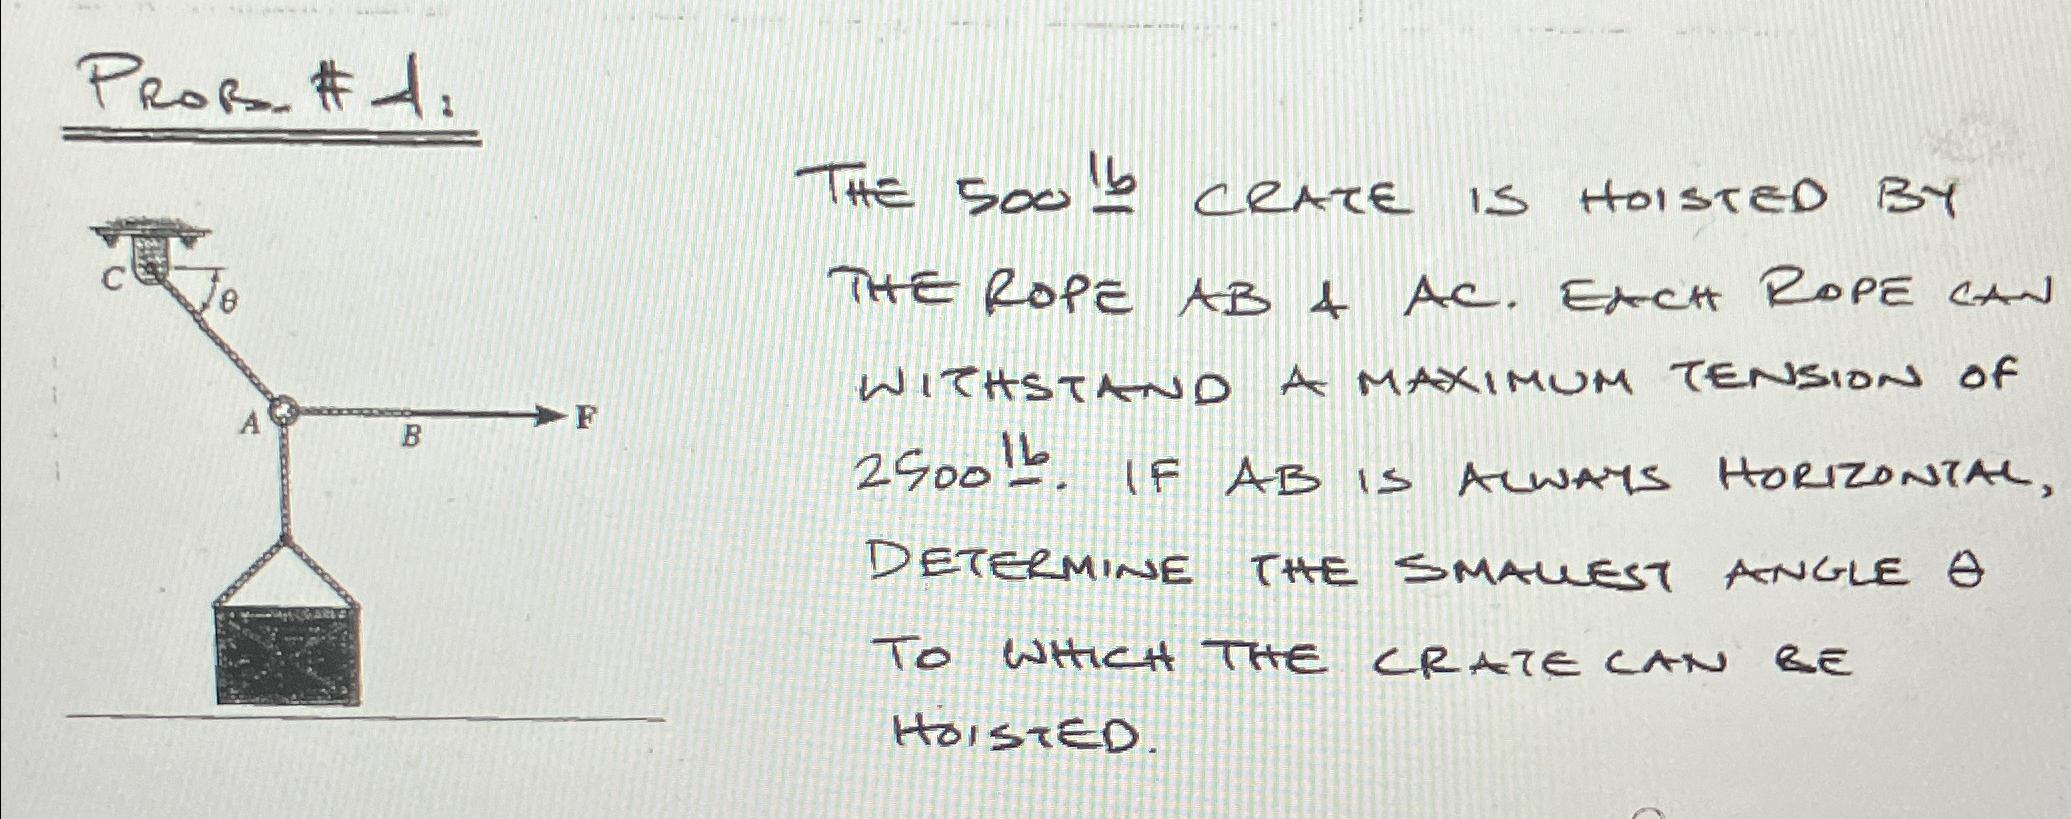 PROB. # 1:
THE 500 lb CRATE IS HOISTED BY
THE ROPE AB & AC. EACH ROPE CAN
WITHSTAND A MAXIMUM TENSION OF
2500 lb. IF AB IS ALWAYS HORIZONTAL,
DETERMINE THE SMALLEST ANGLE θ
TO WHICH THE CRATE CAN BE
HOISTED.
C
θ
A
B
F